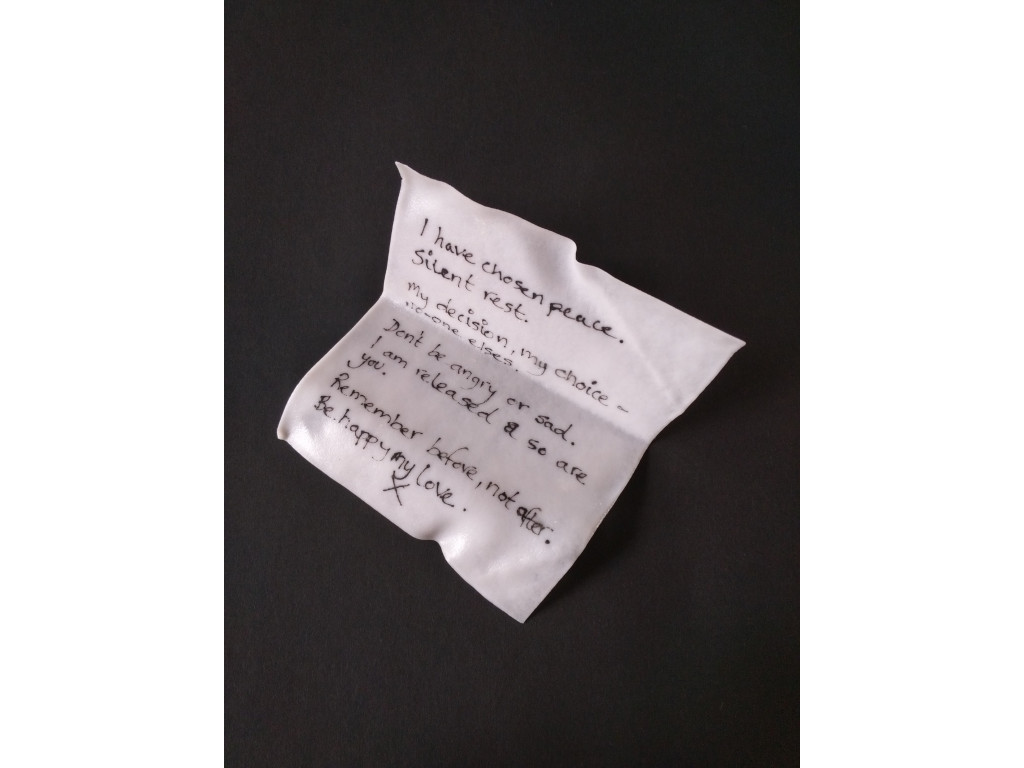 I have chosen peace.
Silent rest.
my decision, my choice -
no-one elses.
Don't be angry or sad.
I am released & so are
you.
Remember before, not after.
Be happy my love.
X